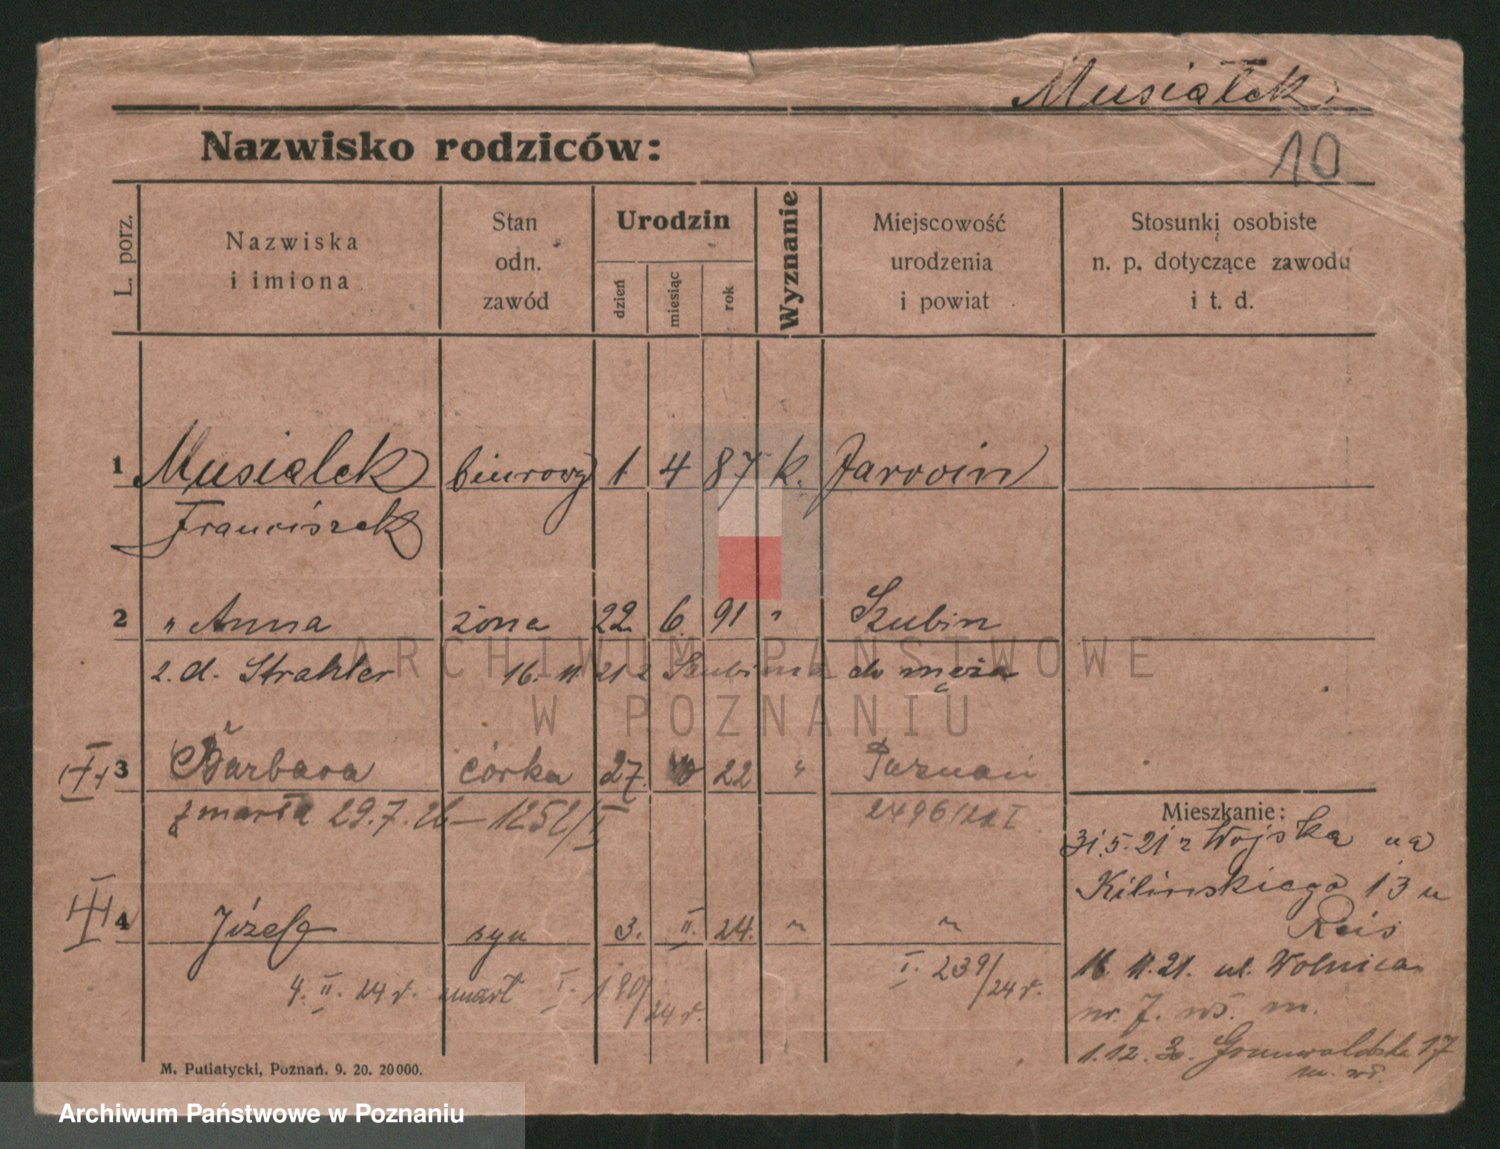 Musiałek
10
Nazwisko rodziców:
L. porz.
Nazwiska
i imiona
Stan
odn.
zawód
Urodzin
dzień
miesiąc
rok
Wyznanie
Miejscowość
urodzenia
i powiat
Stosunki osobiste
n. p. dotyczące zawodu
i t. d.
1 Musialek biurowy 1 4 87 k. Jarocin
Franciszek
2 " Anna żona 22 6 91 " Szubin
z. d. Strahler 16. 11 21 z Szubina do męża
3 Barbara córka 27. 22 " Poznań
zmarła 29.7.26 — 1252/I 2496/22 I
Mieszkanie:
31.5.21 z Wojska na
Kilińskiego 13 u
Reis
4 Józef syn 3. II. 24. " "
4. II. 24 r. umarł I. 190/24 r. I. 239/24 r.
16. 11. 21. ul. Wolnica
nr. 7. wś. m.
1. 12. 30. Grunwaldzka 17
m. wł.
M. Putiatycki, Poznań. 9. 20. 20000.
ARCHIWUM PAŃSTWOWE
W POZNANIU
Archiwum Państwowe w Poznaniu